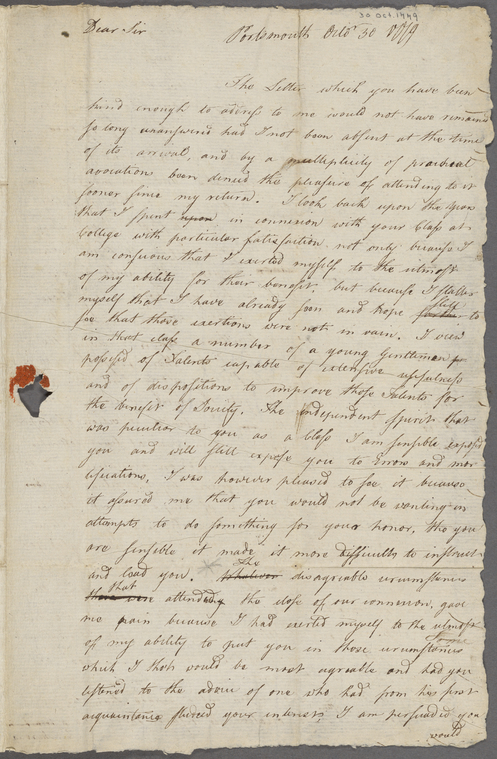 30 Oct 1779
Dear Sir Portsmouth Octo 30 1779
The Letter which you have been
kind enough to address to me would not have remained
so long unanswered had I not been absent at the time
of its arrival, and by a multiplicity of practical
avocations been denied the pleasure of attending to it
sooner since my return. I look back upon the
that I spent upon in connexion with your Class at
College with particular satisfaction not only because I
am conscious that I exerted myself to the utmost
of my ability for their benefit, but because I flatter
myself that I have already seen and hope still to
see that those exertions were not in vain. I view
in that class a number of a young Gentlemen
possess'd of Talents capable of extensive usefulness
and of dispositions to improve those Talents for
the benefit of Society. The independent spirit that
was peculiar to you as a Class I am sensible exposed
you and will still expose you to Errors and mor
tifications, I was however pleased to see it because
it assured me that you would not be wanting in
attempts to do something for your honor, tho you
are sensible it made it more difficult to instruct
and lead you. The disagreable circumstance
that attended the close of our connexion, gave
me pain because I had exerted myself to the utmost
of my ability to put you in those circumstances
which I thot would be most agreable and had you
listened to the advice of one who had from his first
acquaintance studied your interest I am persuaded you
would